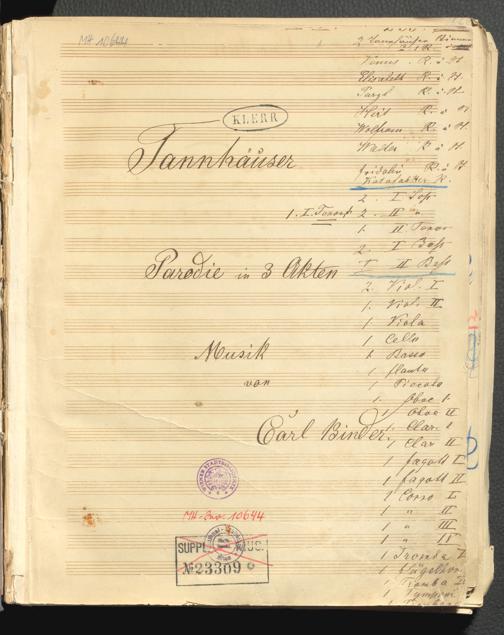 MH 10644
KLERR
Tannhäuser
Parodie in 3 Akten
Musik
von
Carl Binder
MH-Inv. 10644
SUPPL. MUS.
№ 23309
2 Tannhäuser Stimmen
Venus R. u H.
Elisabeth R u H.
R. u. H.
R. u H.
Wolfram R. u H.
Walter R u H
R. u H
R.
2. I Sop
1. I. Tenor 2. II "
1. II Tenor
2. I Bass
1 II Bass
2. Viol. I
1. Viol. II
1. Viola
1 Cello
1. Basso
1 flauto
1 Piccolo
1. Oboe 1.
1 Oboe II
1 Clar. I
1 Clar II
1 fagott I
1 fagott II
1 Corno I
1 " II
1 " III
1 " IV
1 Tromba I
1 Flügelhorn
Tromba II
1 Tympani